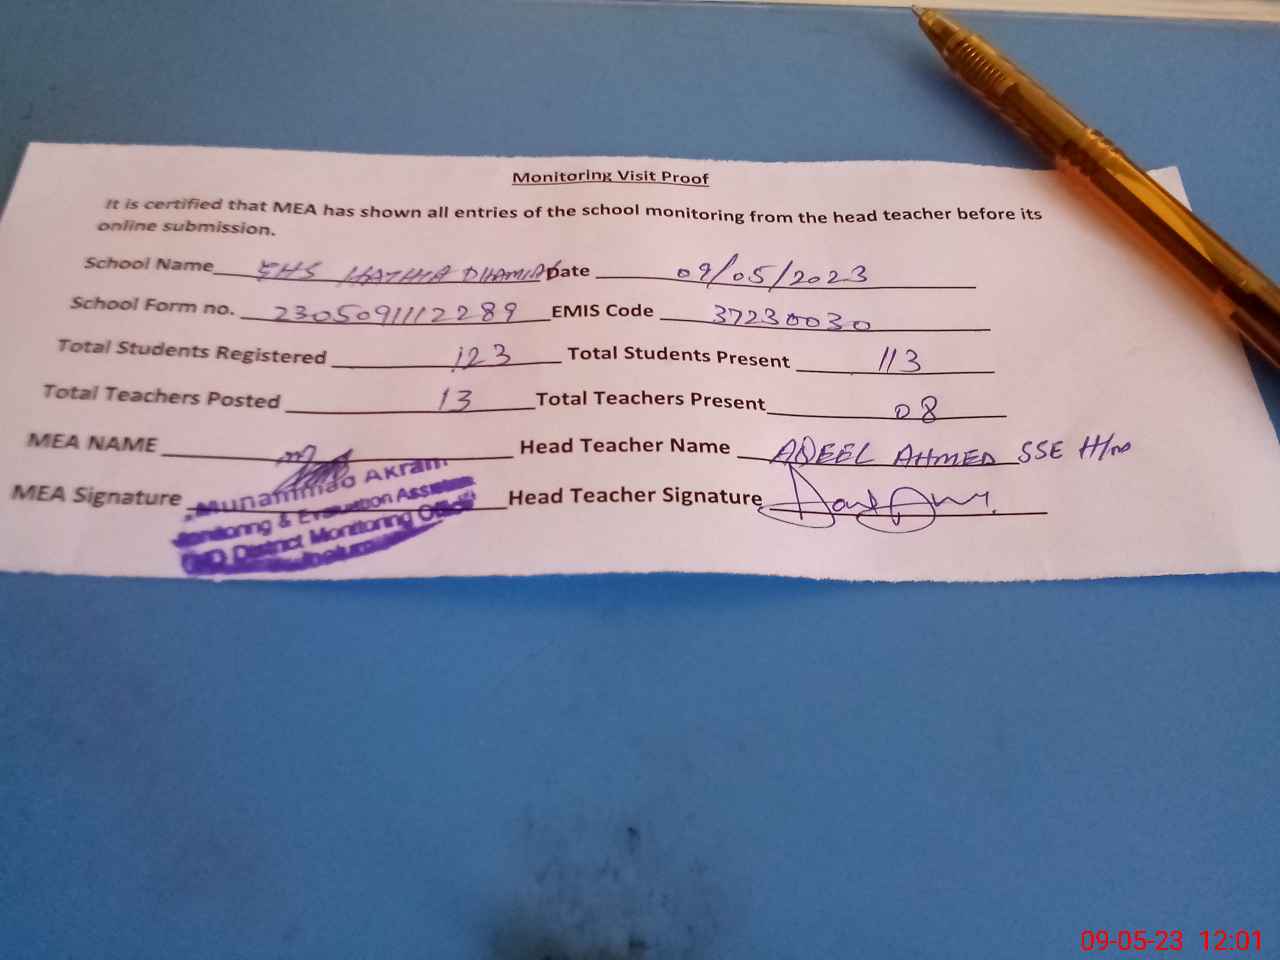 Monitoring Visit Proof
It is certified that MEA has shown all entries of the school monitoring from the head teacher before its
online submission.
School Name GHS HATHIA DHAMIAL Date 09/05/2023
School Form no. 2305091112289 EMIS Code 37230030
Total Students Registered 123 Total Students Present 113
Total Teachers Posted 13 Total Teachers Present 08
MEA NAME Head Teacher Name ADEEL AHMED SSE H/m
MEA Signature Head Teacher Signature
Muhammad Akram
Monitoring & Evaluation Assistant
District Monitoring Office
09-05-23 12:01